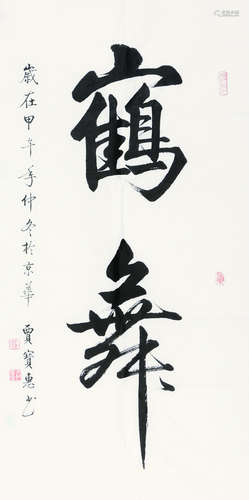 鶴舞
歲在甲午年仲冬於京華
賈寶惠書